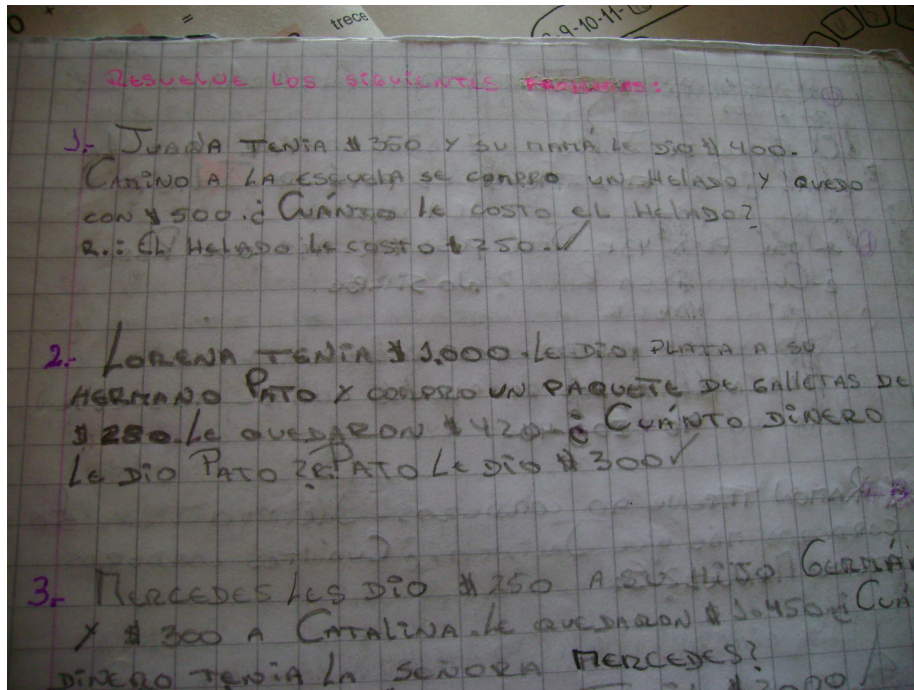 trece
9-10-11-
RESUELVE LOS SIGUIENTES PROBLEMAS:
1.- JUANA TENIA $350 Y SU MAMÁ LE DIO $400.
CAMINO A LA ESCUELA SE COMPRO UN HELADO Y QUEDO
CON $500.¿ CUÁNTO LE COSTO EL HELADO?
R.: EL HELADO LE COSTO $250.✓
2.- LORENA TENIA $1.000.LE DIO PLATA A SU
HERMANO PATO Y COMPRO UN PAQUETE DE GALLETAS DE
$280.LE QUEDARON $420.¿ CUÁNTO DINERO
LE DIO PATO ?R.PATO LE DIO $300✓
3.- MERCEDES LES DIO $250 A SU HIJO GERMÁ
Y $300 A CATALINA.LE QUEDARON $1.450.¿ CUÁ
DINERO TENIA LA SEÑORA MERCEDES?